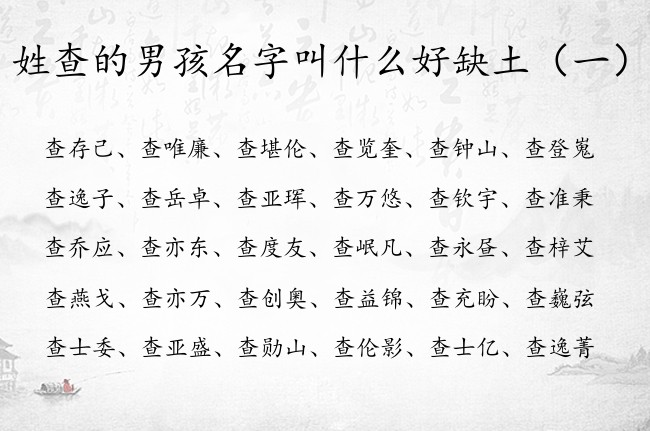 姓查的男孩名字叫什么好缺土（一）
查存己、查唯廉、查堪伦、查览奎、查钟山、查登嵬
查逸子、查岳卓、查亚珲、查万悠、查钦宇、查准秉
查乔应、查亦东、查度友、查岷凡、查永昼、查梓艾
查燕戈、查亦万、查创奥、查益锦、查充盼、查巍弦
查士委、查亚盛、查勋山、查伦影、查士亿、查逸菁